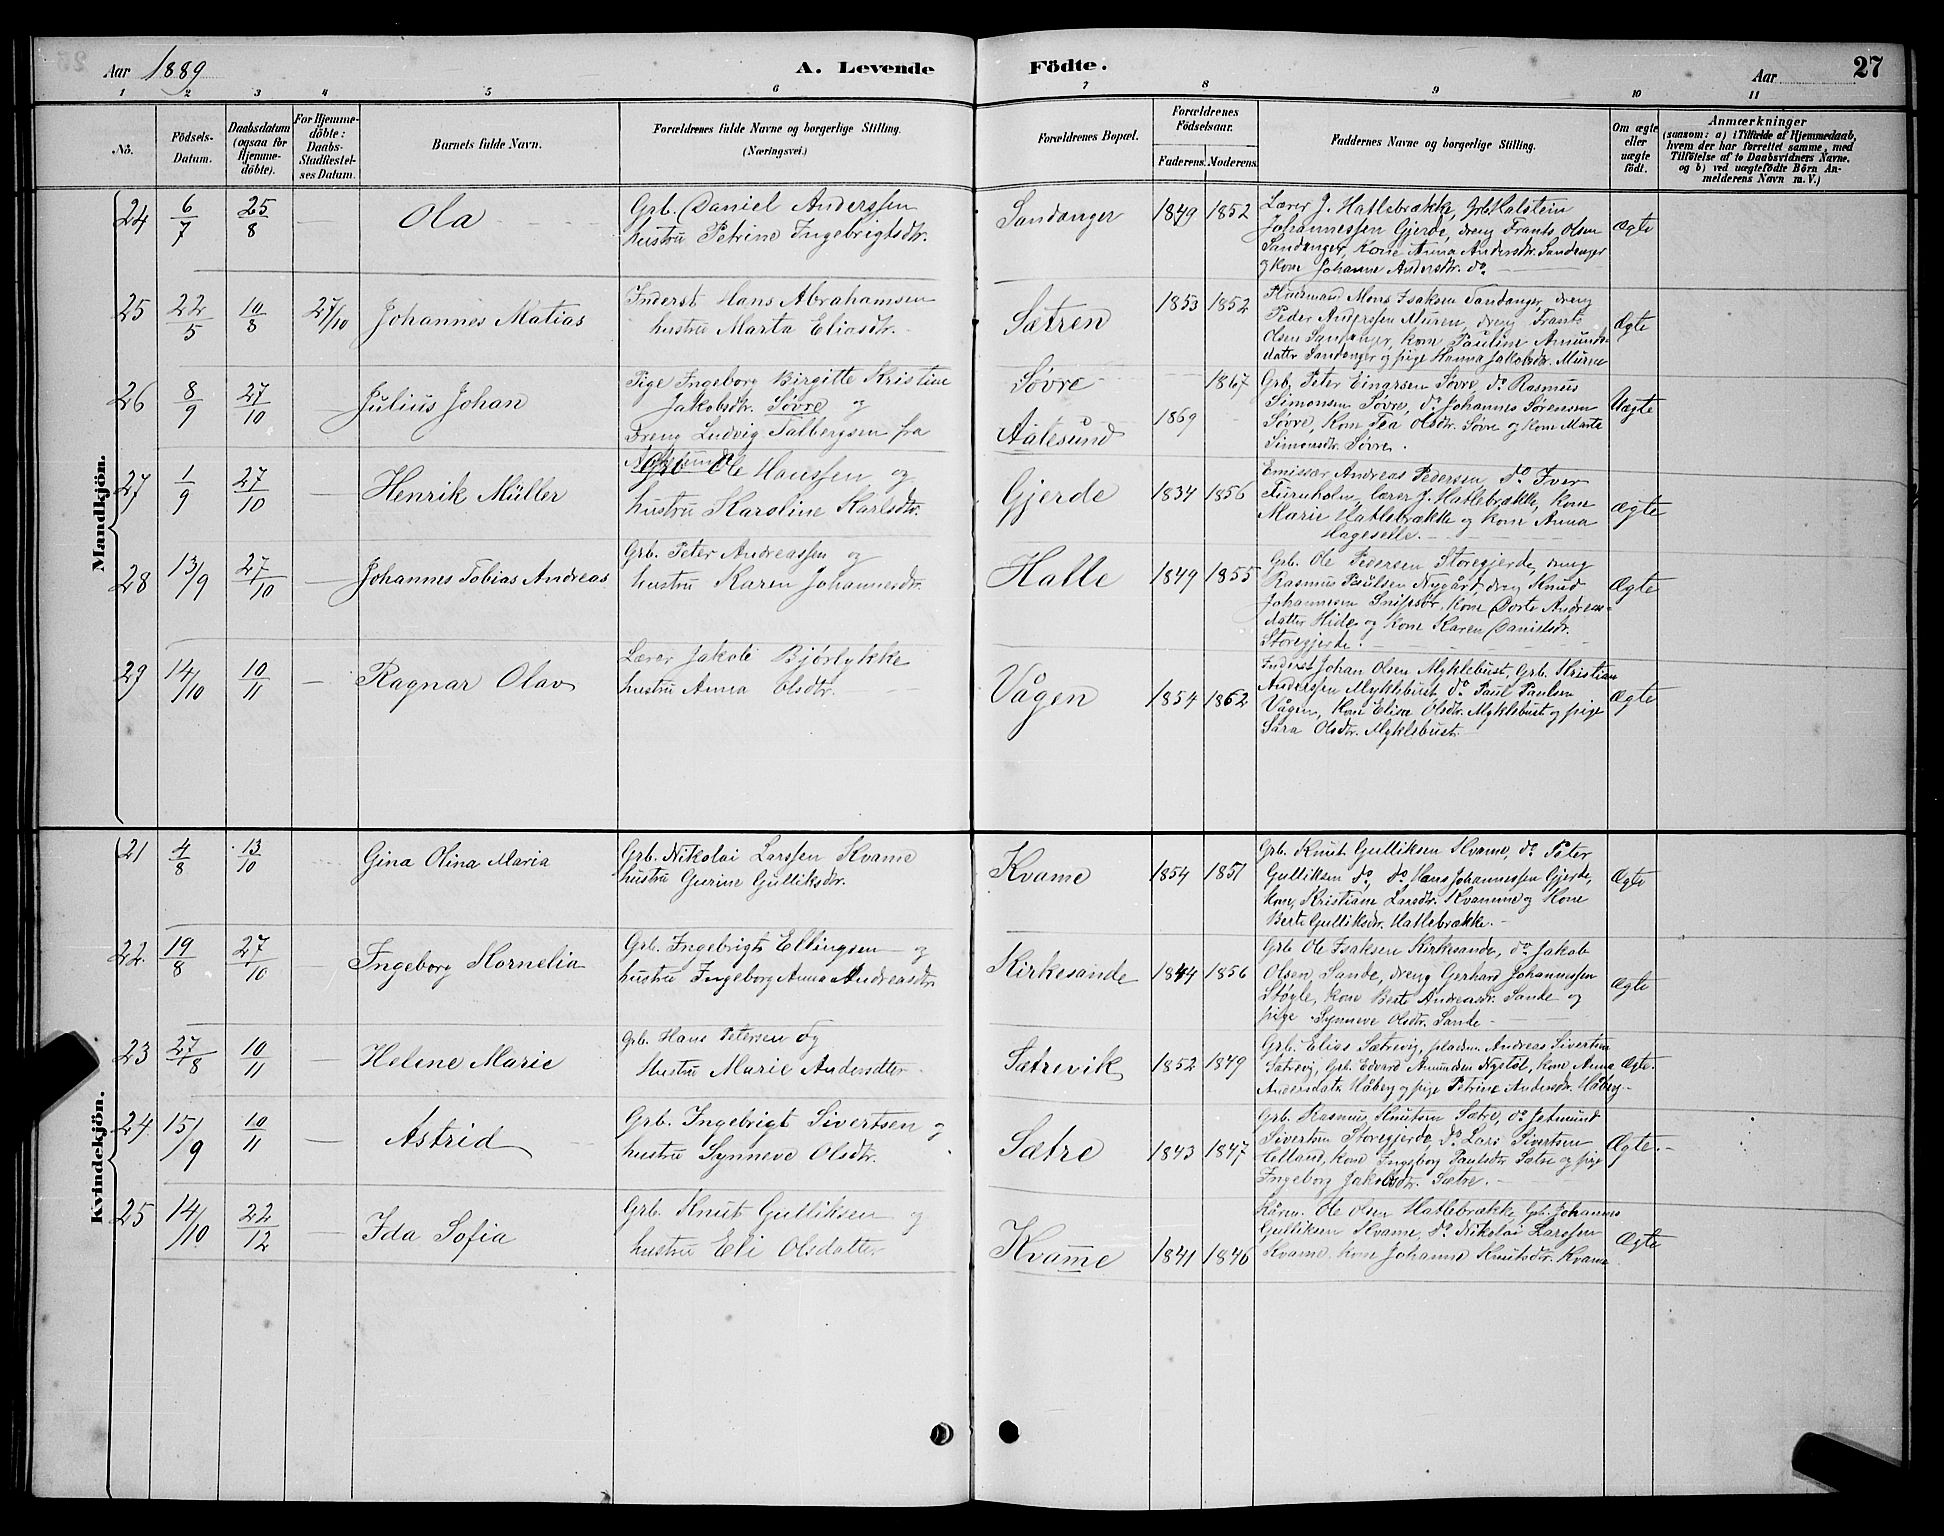 Aar 1889
A. Levende Födte.
Aar 27
1 2 3 4 5 6 7 8 9 10 11
No. Födsels-Datum. Daabsdatum (ogsaa for Hjemme-döbte). For Hjemme-döbte: Daabs-Stadfæstel-ses Datum. Barnets fulde Navn. Forældrenes fulde Navne og borgerlige Stilling. (Næringsvei.) Forældrenes Bopæl. Forældrenes Födselsaar. Faderens. Moderens. Faddernes Navne og borgerlige Stilling. Om ægte eller uægte födt.
Anmærkninger
(saasom: a) i Tilfælde af Hjemmedaab,
hvem der har forrettet samme, med
Tilföielse af to Daabsvidners Navne.
og b) ved uægtefödte Börn An-
melderens Navn m. V.)
Mandkjön.
24 6/7 25/8 — Ola
Grb. Daniel Anderssen
hustru Petrine Ingebrigtsdtr.
Sandanger 1849 1852
Lærer J. Hatlebrække, Grb. Halstein
Johannessen Gjerde, dreng Frants Olsen
Sandanger, Kone Anna Andersdtr. Sandanger
og kone Johanne Andersdtr. do
Ægte
25 22/5 10/8 27/10 Johannes Matias
Inderst Hans Abrahamsen
hustru Marta Eliasdtr.
Sætren 1853 1852
Huusmand Mons Isaksen Sandanger, dreng
Peder Anderssen Muren, dreng Frants
Olsen Sandanger, kone Pauline Amunds-
datter Sandanger og pige Hanna Jakobsdtr. Muren
Ægte
26 8/9 27/10 Julius Johan
Pige Ingeborg Birgitte Kristine
Jakobsdtr. Søvre og
Dreng Ludvig Talbergsen fra
Aalesund
Søvre 1867
Aalesund 1869
Grb. Peter Einarsen Søvre, do Rasmus
Simonsen Søvre, do Johannes Sørensen
Søvre, Kone Tea Olsdtr. Søvre og kone Marte
Simonsdtr. Søvre.
Uægte
27 1/9 27/10 — Henrik Müller
Grb. Ole Hanssen og
hustru Karoline Karlsdtr.
Gjerde 1834 1856
Emissær Andreas Pedersen, do Iver
Furuholm, lærer J. Hatlebrække, Kone
Marie Hatlebrække og kone Anna
Hageselle.
Ægte
28 13/9 27/10 — Johannes Tobias Andreas
Grb. Peter Andreassen og
hustru Karen Johannesdtr.
Halle 1849 1855
Grb. Ole Pedersen Storegjerde, dreng
Rasmus Paulsen Nygård, dreng Knud
Johannesen Snipsør, kone Dorte Andreas-
datter Hide og kone Karen Danielsdr.
Storegjerde.
Ægte
29 14/10 10/11 — Ragnar Olav
Lærer Jakob Bjørlykke
hustru Anna Olsdtr.
Vågen 1854 1862
Inderst Johan Olsen Myklebust, Grb. Kristian
Anderssen Myklebust do Paul Paulsen
Vågen, Kone Elisa Olsdtr. Myklebust og pige
Sara Olsdtr. Myklebust
Ægte
Kvindekjön.
21 4/8 13/10 Gina Olina Maria
Grb. Nikolai Larssen Kvame
hustru Gurine Gulliksdr.
Kvame 1854 1851
Grb. Knut Gulliksen Kvame, do Peter
Gulliksen do, do Hans Johannessen Gjerde,
kone, Kristiane Larsdtr. Kvamme og Kone
Berte Gulliksdtr. Hatlebrække.
Ægte
22 19/8 27/10 Ingeborg Kornelia
Grb. Ingebrigt Ellingsen og
hustru Ingeborg Anna Andreasdtr.
Kirkesande 1844 1856
Grb. Ole Isaksen Kirkesande, do Jakob
Olsen Sande, dreng Gerhard Johannessen
Støyle, Kone Berte Andreasdr. Sande og
pige Synneve Olsdtr. Sande
Ægte
23 27/8 10/11 — Helene Marie
Grb. Hans Petersen og
Hustru Marie Andersdtter
Sætrevik 1852 1849
Grb. Elias Sætrevig, pladsm. Andreas Sivertsen
Sætrevig, Grb. Edvard Amundsen Nystøl, kone Anna
Andersdatr. Håberg og pige Petrine Andersdr. Håberg
Ægte.
24 15/9 10/11 — Astrid
Grb. Ingebrigt Sivertsen og
hustru Synneve Olsdtr.
Sætre 1843 1847
Grb. Rasmus Knutsen Sætre, do Jetmund
Sivertsen Storegjerde, do Lars Sivertsen
kone Ingeborg Paulsdtr. Sætre og pige
Ingeborg Jakobsdtr. Sætre.
Ægte.
25 14/10 22/12 — Ida Sofia
Grb. Knut Gulliksen og
hustru Eli Olsdatter
Kvamme 1841 1846
Ole Olsen Hatlebrække, Grb. Johannes
Gulliksen Kvame, do Nikolai Larssen
Kvame, kone Johanne Knutsdtr. Kvame
Ægte